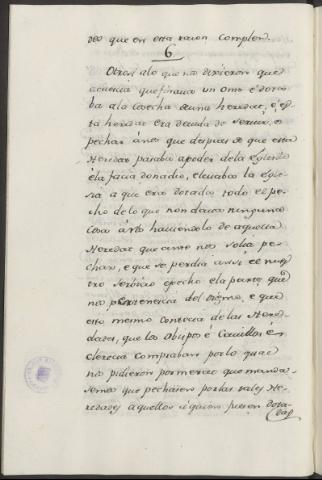 dos que en esta razon complen.
6
Otrosi alo que nos dixieron que
acaecia que finaua un ome é dexa-
ba ala Eglesia una heredat, é es-
ta heredat era tenuda de seruir, e
pechar á nos que despues de que esta
Heredat pasaba a poder de la Eglesia
éla facia donadio, eleuaba la Egle-
sia a que era dotados todo el pe-
cho de lo que non daua ninguna
cosa á nos haciendolo de aquella
Heredat que ante nos solia pe-
char, e que se perdia ansi el nues-
tro seruicio epecho ela parte que
nos pertenencia del diezmo, e que
esto mesmo contecia de las Hered-
dades, que los Obispos é Cauillos é
Clerecia compraban por lo qual
nos pidieron por merced que mandase-
semos que pechasen por las tales He-
redades aquellos á quien fuesen dota-
das